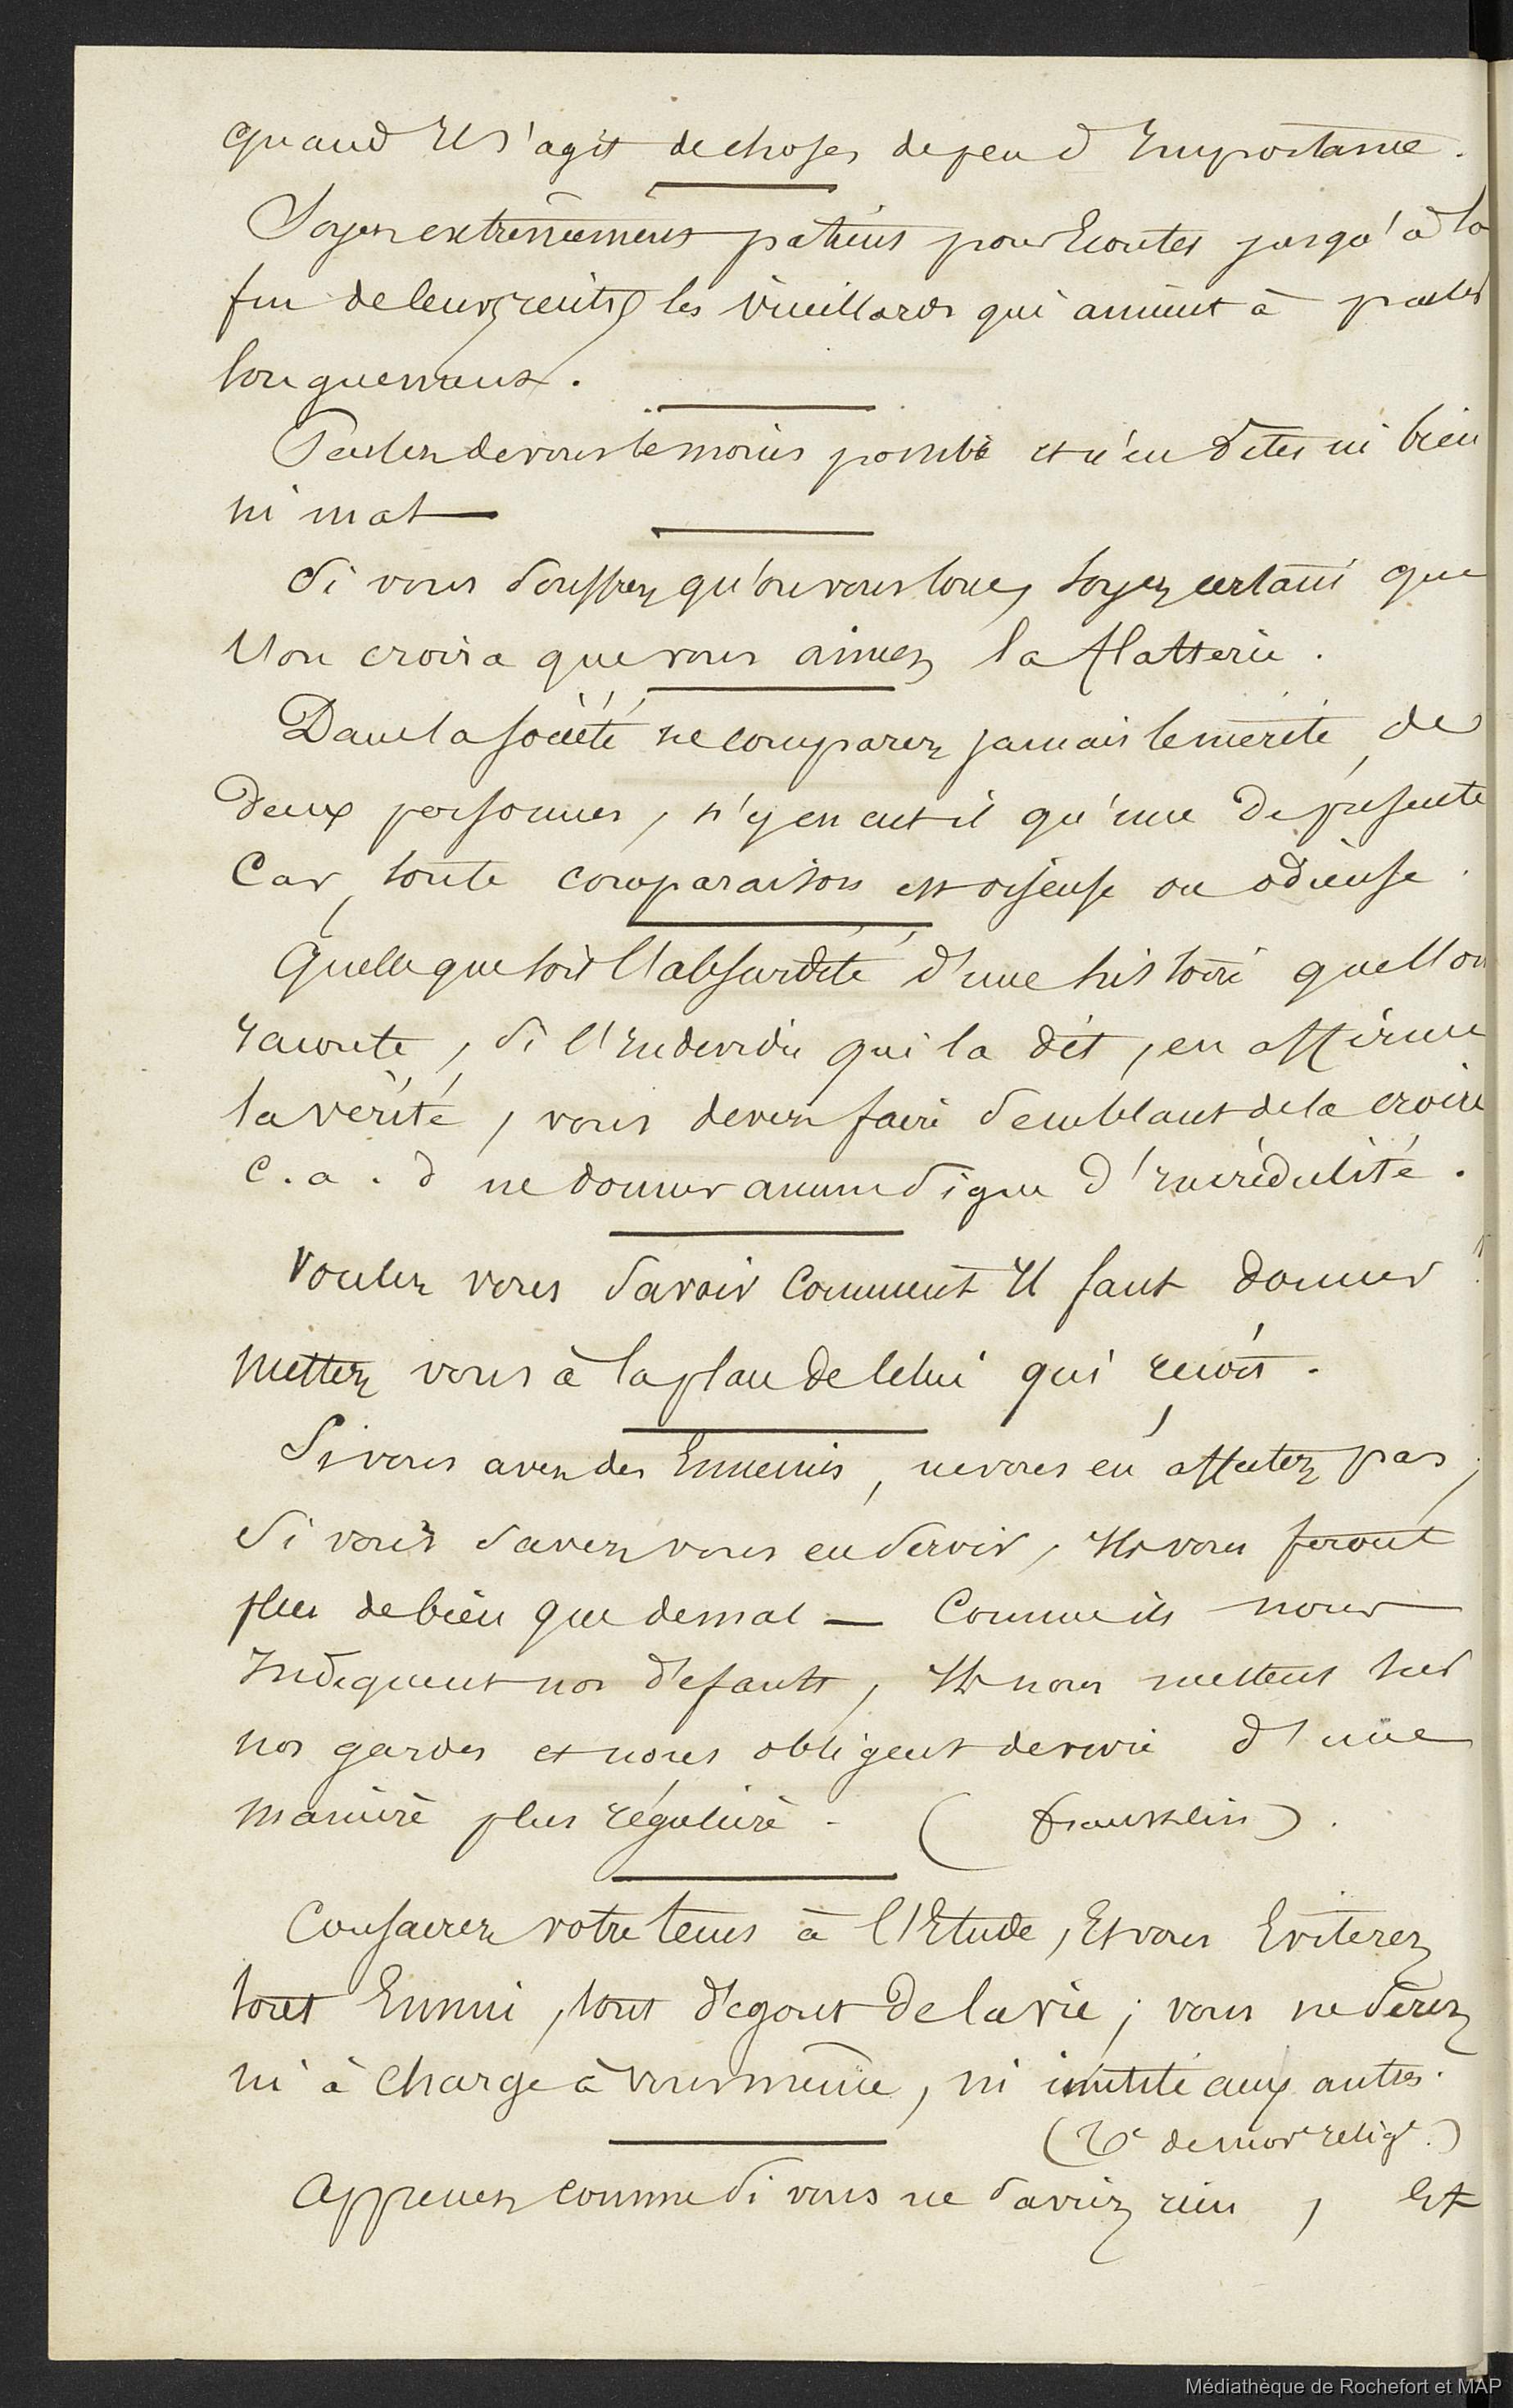 quand Il s'agit de choses de peu d'Importance.
Soyez extrêmement patient pour Ecouter jusqu'à la
fin de leurs récits les vieillards qui aiment à parler
longuement.
Parlez de vous le moins possible et n'en dites ni bien
ni mal —
Si vous souffrez qu'on vous loue, soyez certain que
l'on croira que vous aimez la flatterie.
Dans la société ne comparez jamais le mérite de
deux personnes, n'y en eut il qu'une de présente
Car toute comparaison est oiseuse ou odieuse.
Quelle que soit l'absurdité d'une histoire que l'on
raconte, si l'Individu qui la dit, en affirme
la vérité, vous devez faire semblant de la croire
c. a. d ne donner aucun signe d'Incrédulité.
Voulez vous savoir comment Il faut donner
mettez vous à la place de celui qui reçoit.
Si vous avez des Ennemis, ne vous en affectez pas,
si vous savez vous en servir, Ils vous feront
plus de bien que de mal — Comme ils nous
Indiquent nos défauts, Ils nous mettent sur
nos gardes et nous obligent de vivre d'une
manière plus régulière. (franklin).
Consacrez votre tems à l'Etude, Et vous Eviterez
tout Ennui, tout dégout de la vie; vous ne serez
ni à charge à vous même, ni inutile aux autres.
(Té de more relige.)
Apprenez comme si vous ne saviez rien, Et
Médiathèque de Rochefort et MAP